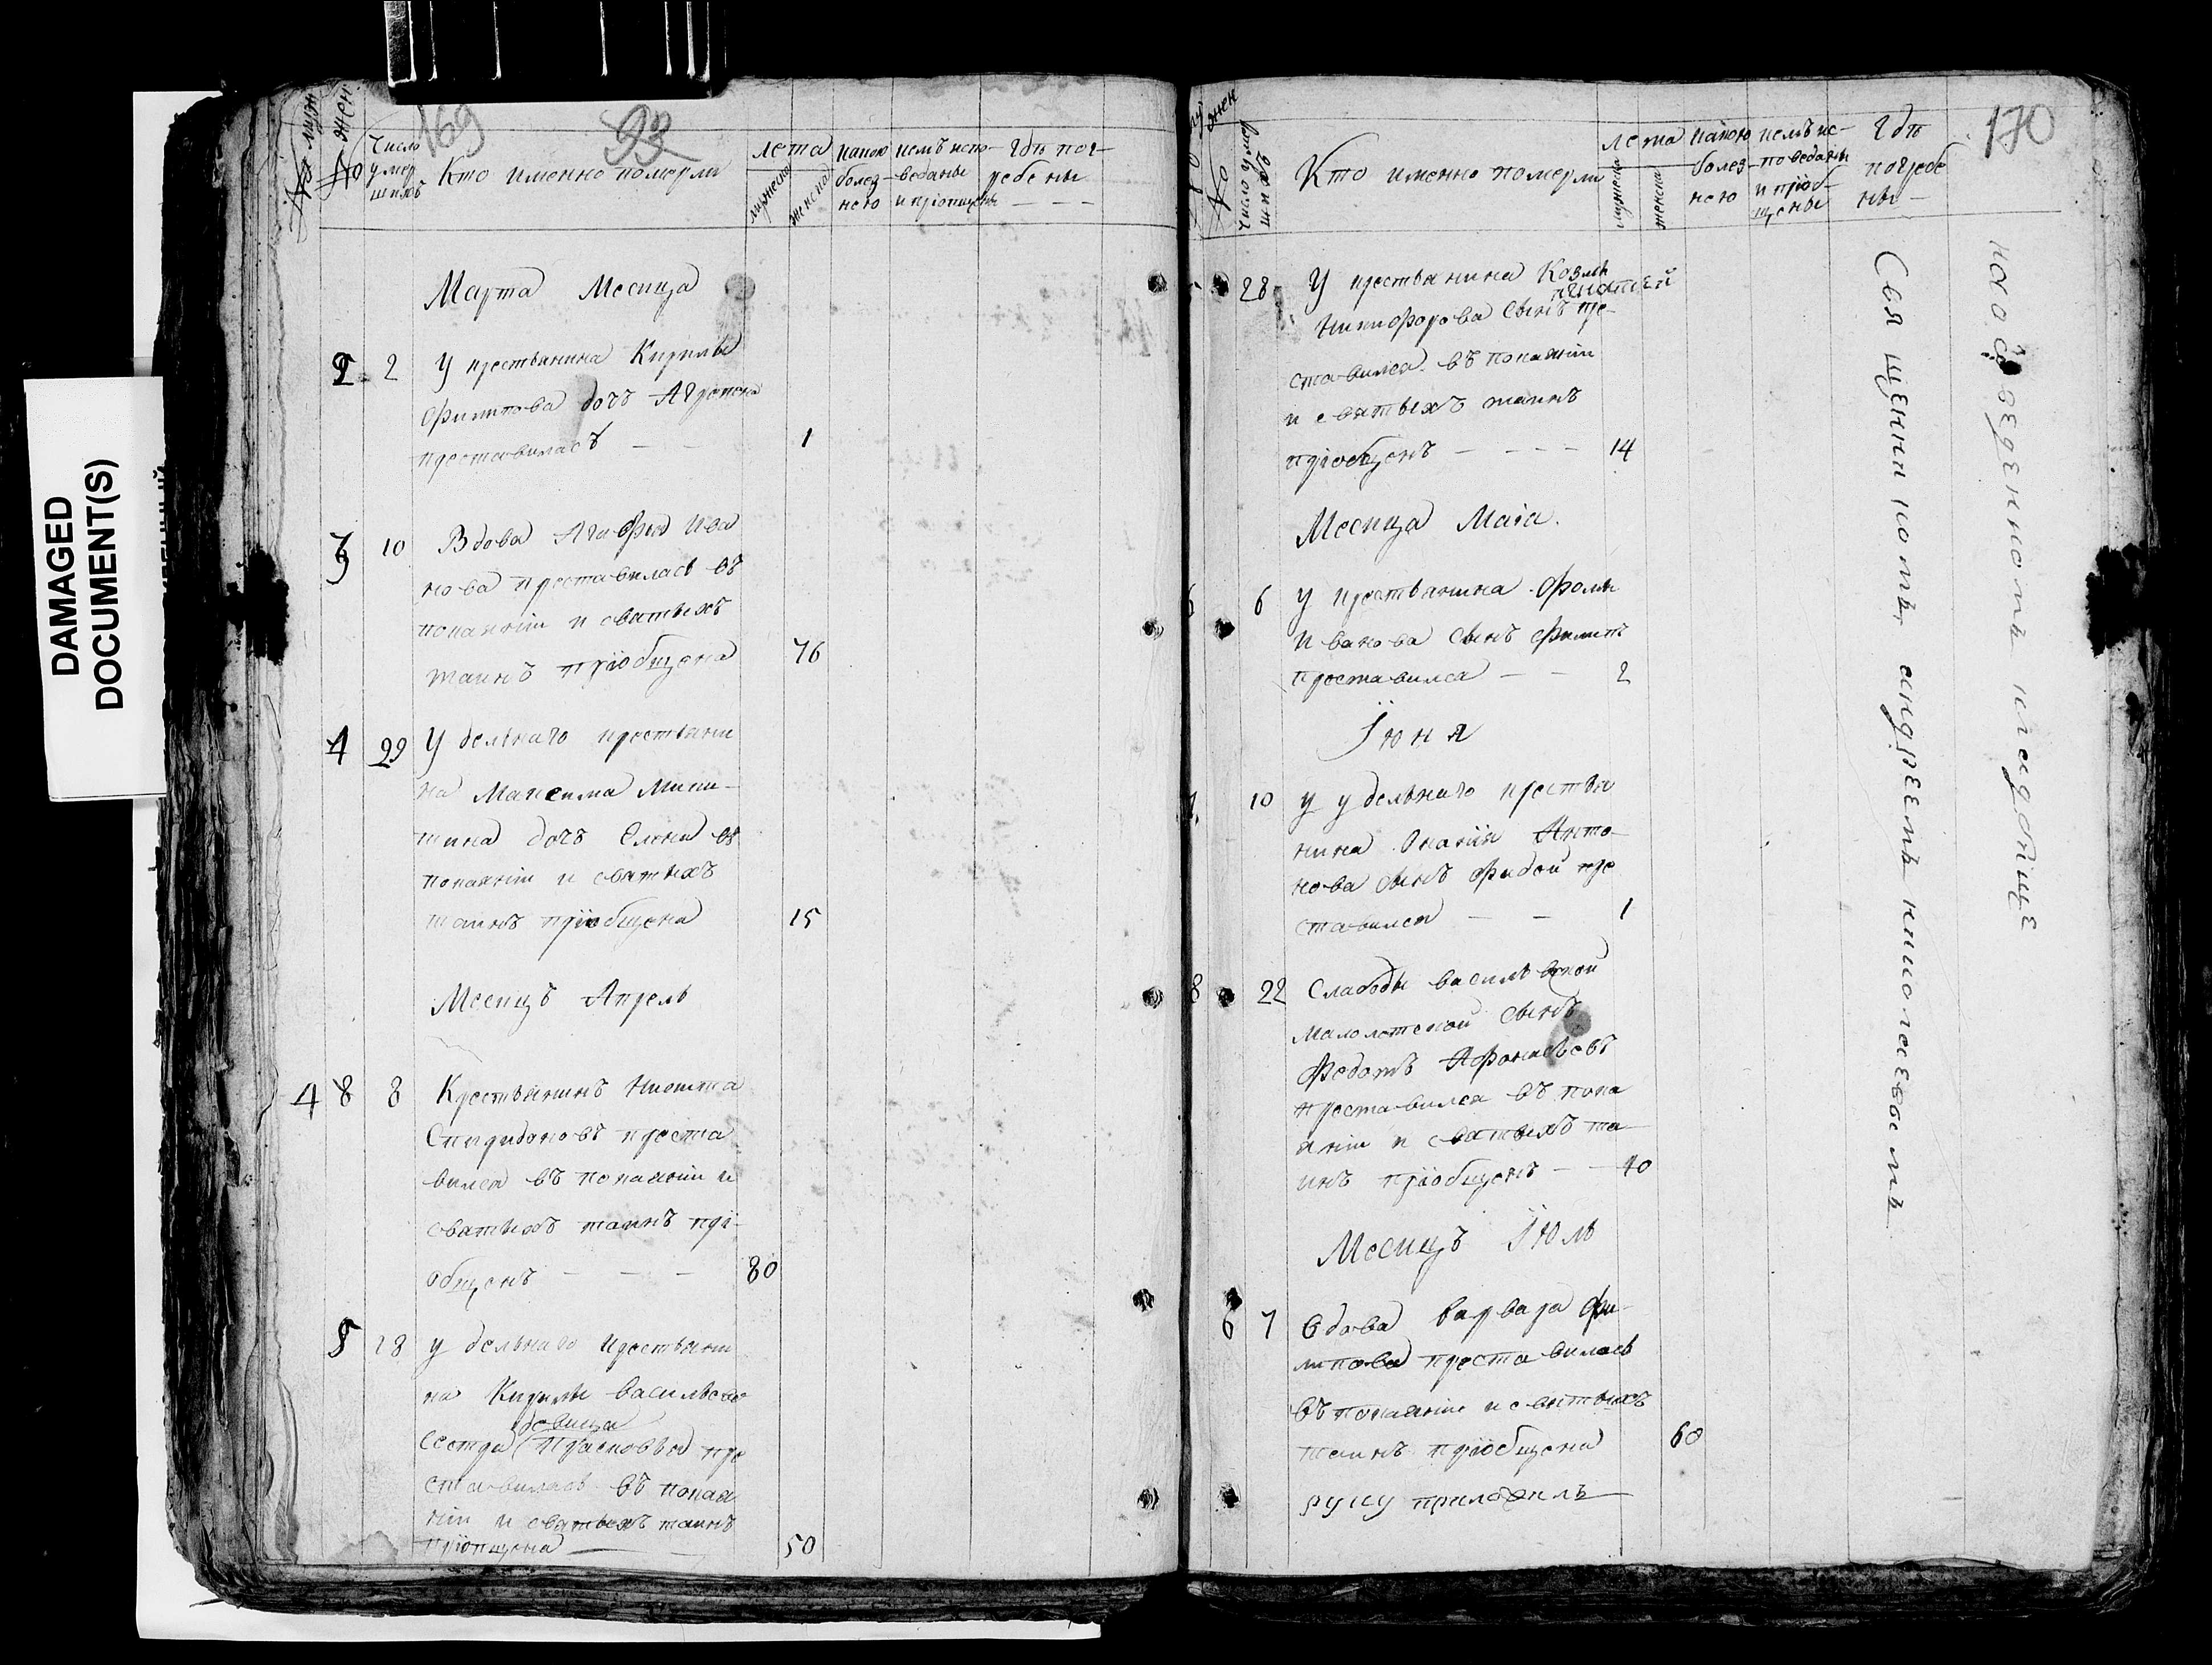 DAMAGED
DOCUMENT(S)
169
93
№ муж
№ жен:
Число
умер
шихъ
Кто именно померли
лета
мужеска
женска
какою
болез
нею
кемъ испо-
веданы
и приопщены
Где пог-
ребены
Марта Месица
2 2 У крестьянина Кирилы
Филипова дочь Агрепена
преставиласъ — — 1
3 10 Вдова Агафия Ива
нова преставилась въ
покаянiи и святыхъ
таинъ прiобщена 76
4 29 Удельнаго крестьяни
на Максима Мики-
тина дочъ Елена въ
покаянiи и святыхъ
таинъ прiобщена 15
Месицъ Апрель
4 8 8 Крестьянинъ Никита
Спиридоновъ преста
вился въ покаянiи и
святыхъ таинъ прi-
общенъ — — — 80
5 18 удельнаго крестьяни
на Кирилы Васильева
девица
сестра Прасковья пре
ставилась въ покая
нiи и святыхъ таинъ
прiопщена 50
170
жен
№
Число умер
шихъ
Кто именно померли
лета
мужеска
женска
какою
болез-
нею
кемъ ис-
поведаны
и прiоб-
щены
Где
погребе
ны —
28 У крестьянина Козмы
Никифорова сынъ пре-
ставился въ покаянiи
и святыхъ таинъ
прiобщенъ — — — — 14
Месица Маiа.
6 У крестьянина Фомы
Иванова сынъ Филипъ
преставился — — 2
Iюня
10 У удельнаго крестья
нина Анто-
нова сынъ пре
ставился — — 1
8 22 Слабоды васильвской
малолетской сынъ
Федотъ Афонасьевъ
преставился въ пока
янiи и святыхъ та
инъ прiобщенъ — — 40
Месицъ Iюль
6 7 Вдова Варвара Фи-
липова преставилась
въ покаянiи и святыхъ
таинъ прiобщена 60
руку приложилъ
Священникомъ андреемъ николаевымъ
на отведенномъ кладбище